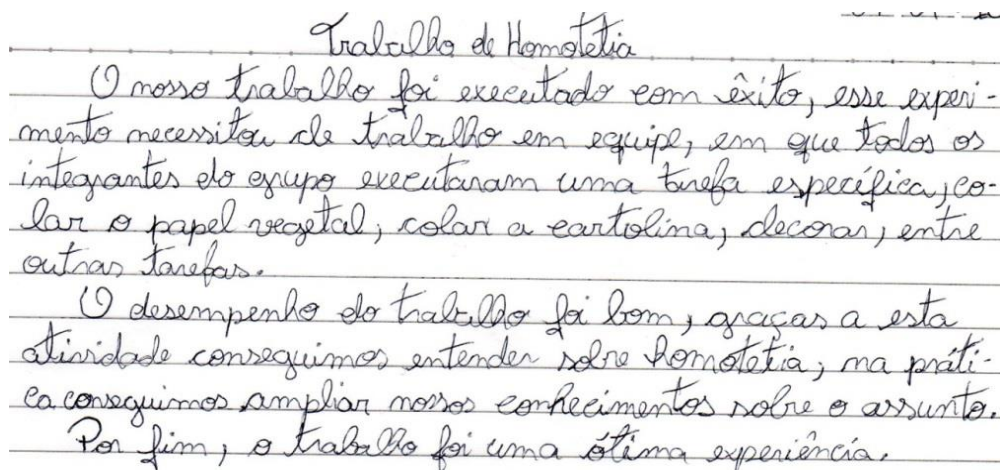 Trabalho de Homotetia
O nosso trabalho foi executado com êxito, esse experi-
mento necessitou de trabalho em equipe, em que todos os
integrantes do grupo executaram uma tarefa específica, co-
lar o papel vegetal, colar a cartolina, decorar, entre
outras tarefas.
O desempenho do trabalho foi bom, graças a esta
atividade conseguimos entender sobre homotetia, na práti-
ca conseguimos ampliar nossos conhecimentos sobre o assunto.
Por fim, o trabalho foi uma ótima experiência.